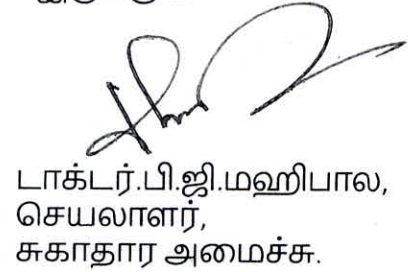 டாக்டர்.பி.ஜி.மஹிபால,
செயலாளர்,
சுகாதார அமைச்சு.